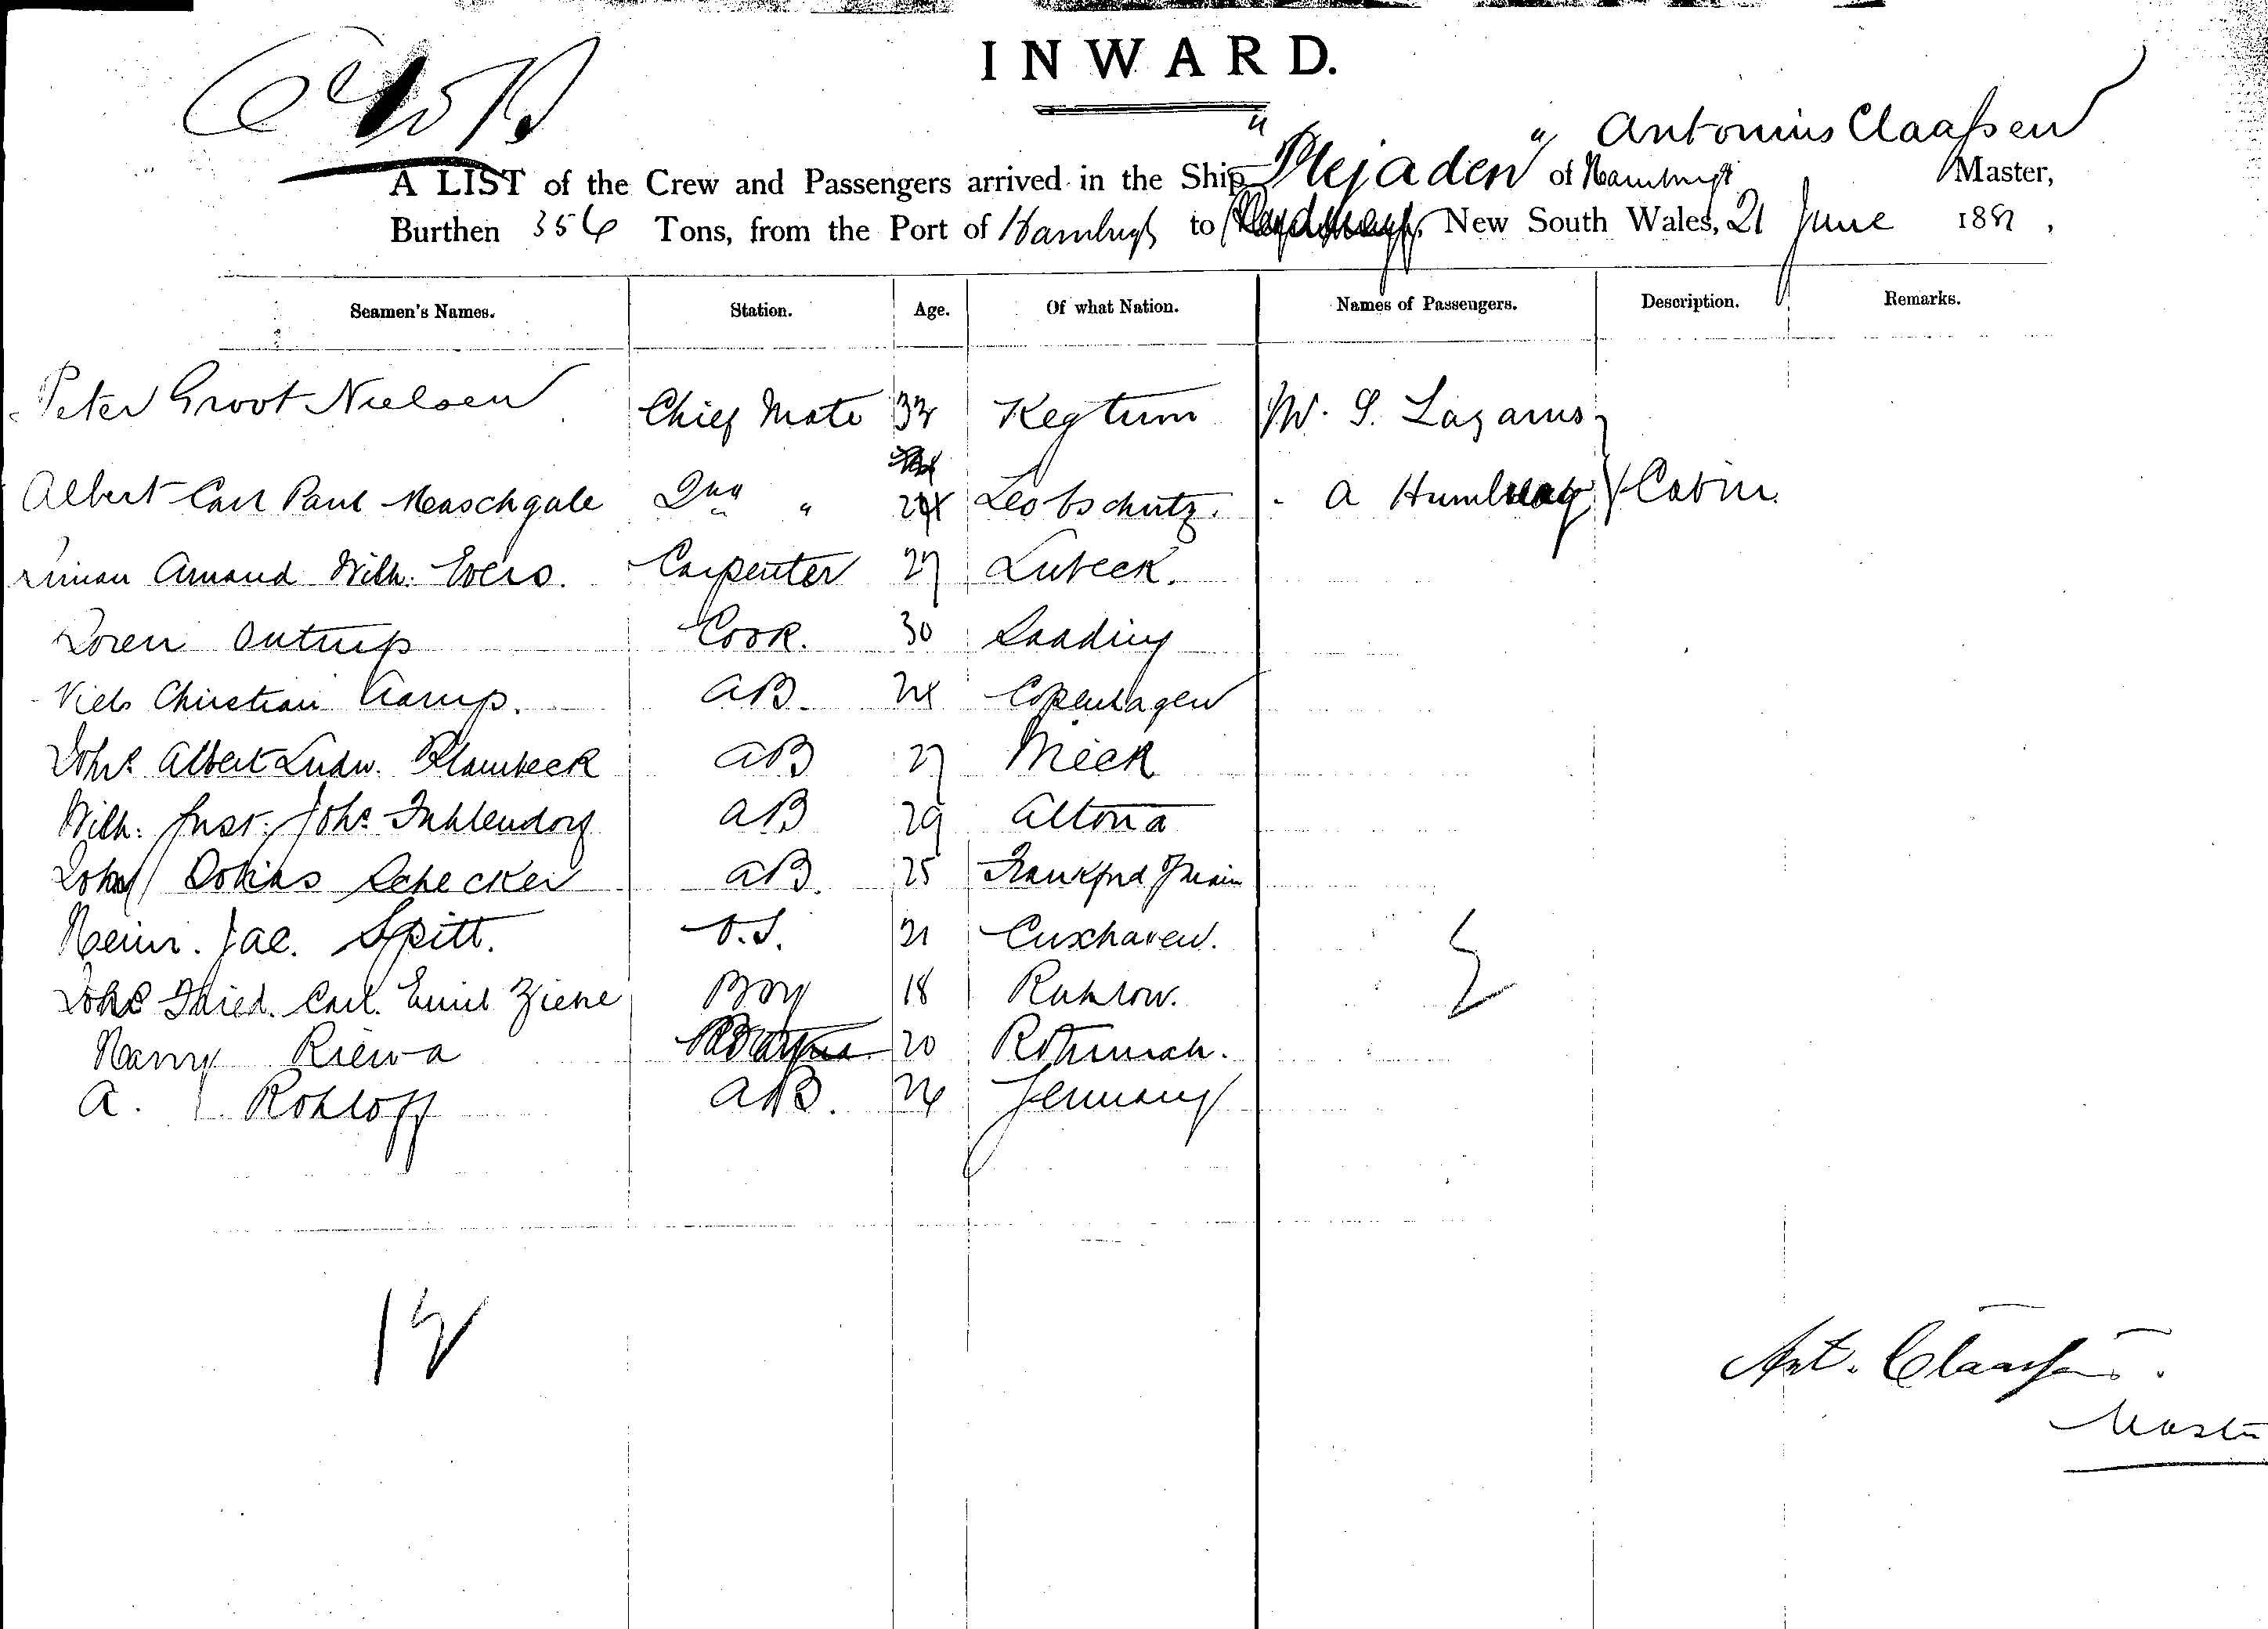 INWARD.
"Plejaden" Antonius Claaßen
A LIST of the Crew and Passengers arrived in the Ship of Hamburgh Master,
Burthen 356 Tons, from the Port of Hamburgh to New South Wales, 21 June 188
Seamen's Names. Station. Age. Of what Nation. Names of Passengers. Description. Remarks.
Peter Groot Nielsen Chief Mate 33 Kegtum M. S. Lazarus
Albert Carl Paul Maschgale 2nd " Leobschutz. - A Cabin.
Amand Wilh. Evers. Carpenter 27 Lubeck.
Soren Outrup Cook. 30 Saading
Niels Christian Aarup. AB. 24 Copenhagen
Johs Albert Ludw. Klambeck AB 27 Meck
Wilh. Just. Johs Fuhlendorf AB 29 Altona
Tobias Schecker AB. 25 Frankford Main
Heinr. Jac. Spitt. O.S. 21 Cuxhaven.
Johs Fried. Carl. Emil Ziehe Boy 18 Ruhlow.
Harry Riewa 20
A. Rohloff AB. 24 Germany
12
Ant. Claassen.
Master